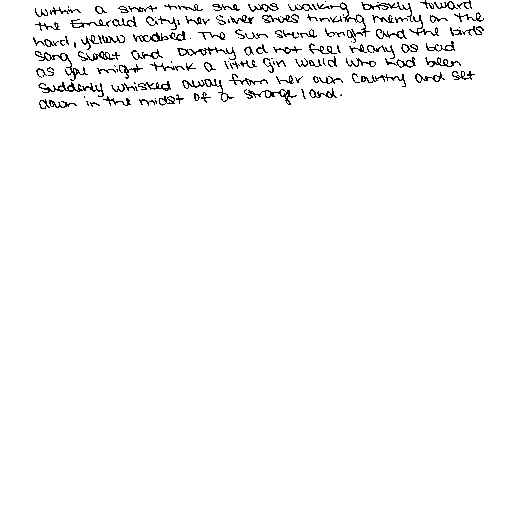 Within a short time she was walking briskly toward
the Emerald City, her Silver Shoes tinkling merrily on the
hard, yellow roadbed. The sun shone bright and the birds
sang sweet and Dorothy did not feel nearly as bad
as you might think a little girl would who had been
suddenly whisked away from her own country and set
down in the midst of a strange land.